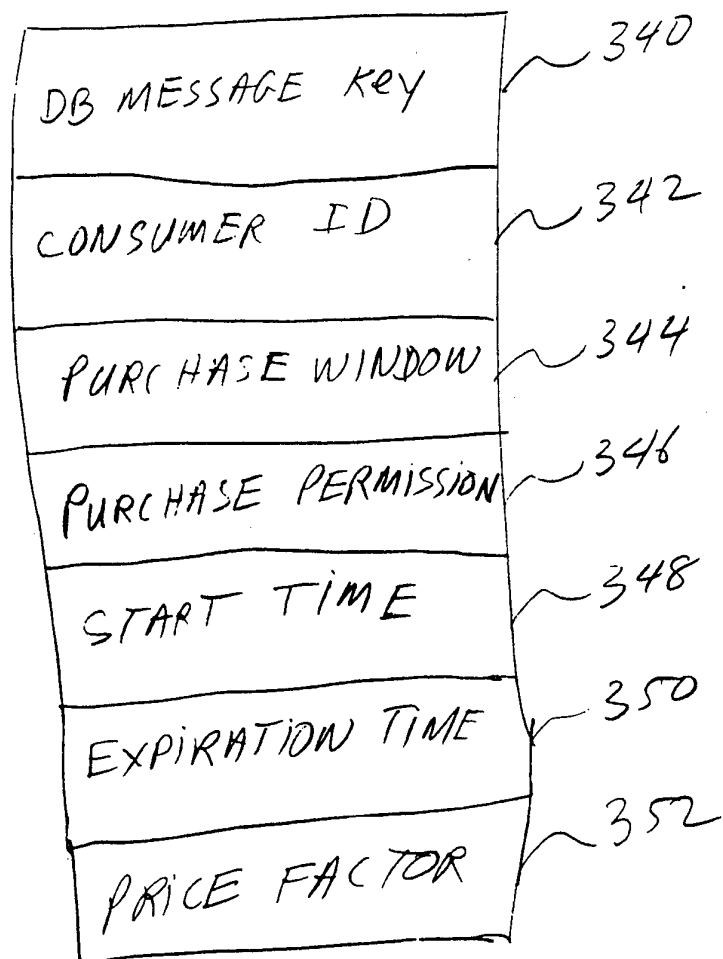 DB MESSAGE Key 340
CONSUMER ID 342
PURCHASE WINDOW 344
PURCHASE PERMISSION 346
START TIME 348
EXPIRATION TIME 350
PRICE FACTOR 352